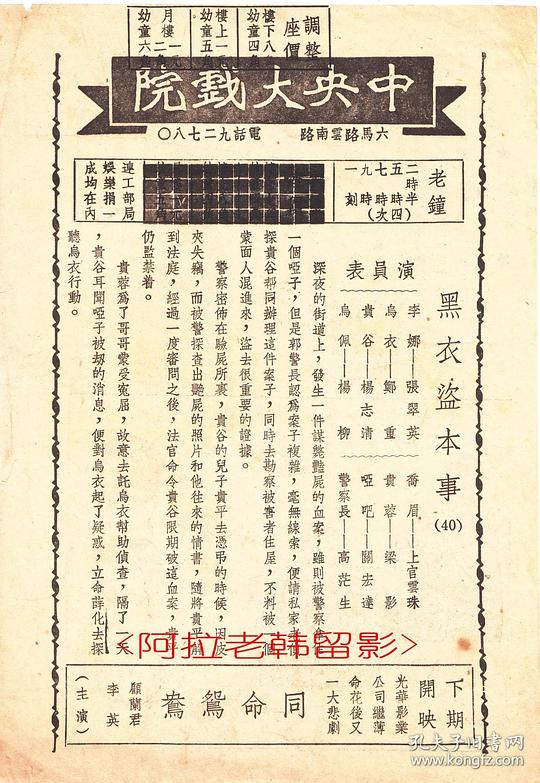 調整
座價
樓下八
幼童四角
樓上一元
幼童五角
月樓一元
二角
幼童六角
中央大戲院
六馬路雲南路 電話九二七八〇
老鐘
二時半
五時(四
七時次
九時)
一刻
連工部局
娛樂捐一
成均在內
黑衣盜本事(40)
演員表
李娜——張翠英
烏衣——鄭重
貴谷——楊志清
烏佩——楊柳
喬眉——上官雲珠
貴蓉——梁影
啞吧——關宏達
警察長——高茫生
深夜的街道上，發生一件謀斃艷屍的血案，雖則被警察
一個啞子，但是郭警長認爲案子複雜，毫無線索，便請私家
探貴谷帮同辦理這件案子，同時去勘察被害者住屋，不料被一個
蒙面人混進來，盜去很重要的證據。
警察密佈在驗屍所裏，貴谷的兒子貴平去憑弔的時候，因皮
夾失竊，而被警探查出艷屍的照片和他往來的情書，隨將貴平解
到法庭，經過一度審問之後，法官命令貴谷限期破這血案，貴平
仍監禁着。
貴蓉爲了哥哥蒙受寃屈，故意去託烏衣幇助偵查，隔了一天
，貴谷耳聞啞子被劫的消息，便對烏衣起了疑惑，立命薛化去探
聽烏衣行動。
<阿拉老韩留影>
下期
開映
光華影業
公司繼薄
命花後又
一大悲劇
同命鴛鴦
顧蘭君
李英
(主演)
孔夫子旧书网
www.kongfz.com